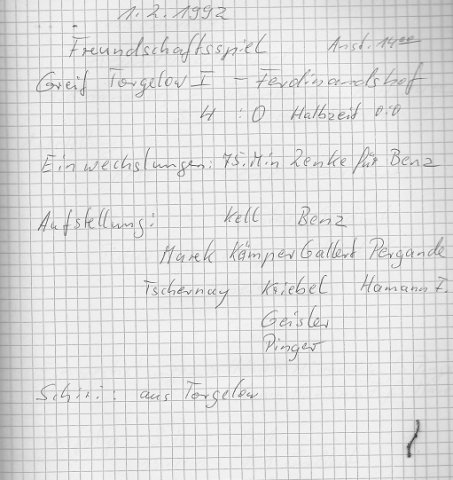 1.2.1992
Freundschaftsspiel Anst. 14⁰⁰
Greif Torgelow I - Ferdinandshof
4 : 0 Halbzeit 0:0
Einwechslungen: 75. Min Zenke für Benz
Aufstellung: Kell Benz
Marek Kämper Gallert Pergande
Tschernay Kriebel Hamann F.
Geisler
Pinger
Schiri: aus Torgelow